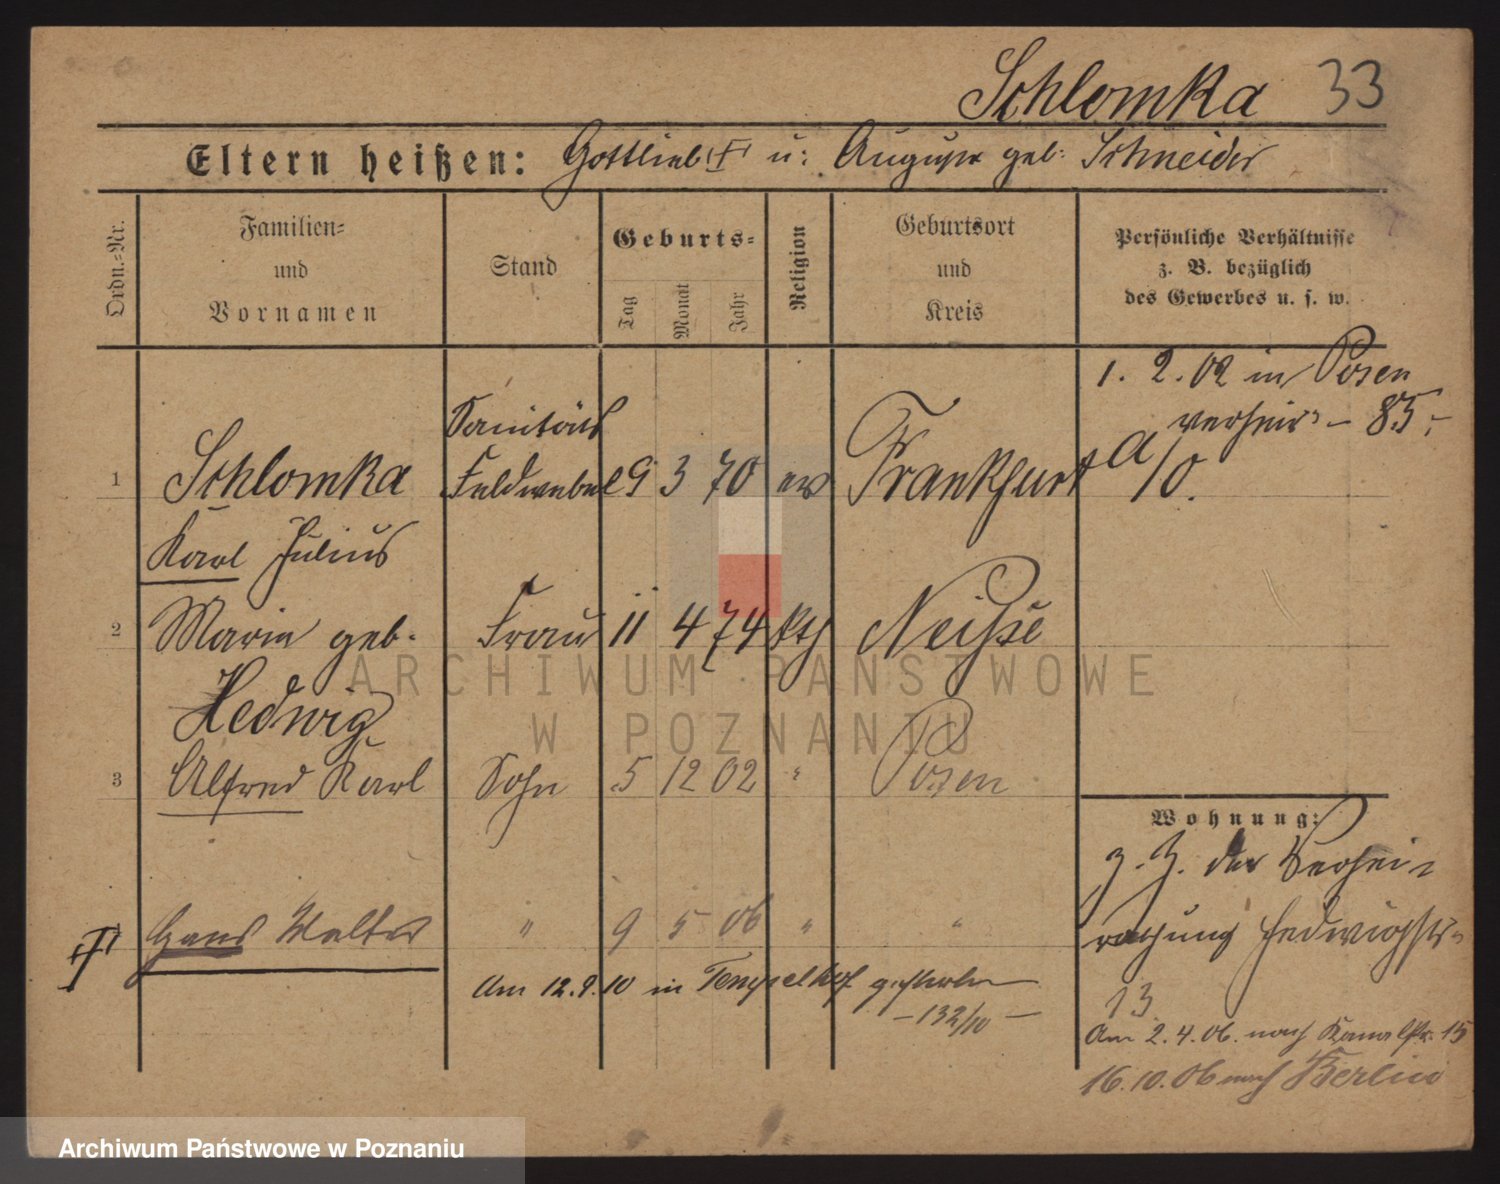 Schlomka 33
Eltern heißen: Gottlieb u: Auguste geb: Schneider
Ordn.-Nr.
Familien-
und
Vornamen
Stand
Geburts-
Tag
Monat
Jahr
Religion
Geburtsort
und
Kreis
Persönliche Verhältnisse
z. B. bezüglich
des Gewerbes u. s. w.
1. 2. 02 in Posen
verheir. - 85.-
Sanitäts
1 Schlomka Feldwebel 9 3 70 ev Frankfurt a/O.
Karl Julius
2 Maria geb. Frau 11 4 74 kth Neiße
Hedwig
3 Alfred Karl Sohn 5 12 02 " Posen
Wohnung:
z. Z. der Verhei-
rathung Hedwigstr.
13.
Hans Walter " 9 5 06 " "
Am 12.9.10 in Tempelhof gestorben
-132/10-
Am 2.4.06. nach Kanalstr. 15
16.10.06 nach Berlin
ARCHIWUM PAŃSTWOWE
W POZNANIU
Archiwum Państwowe w Poznaniu